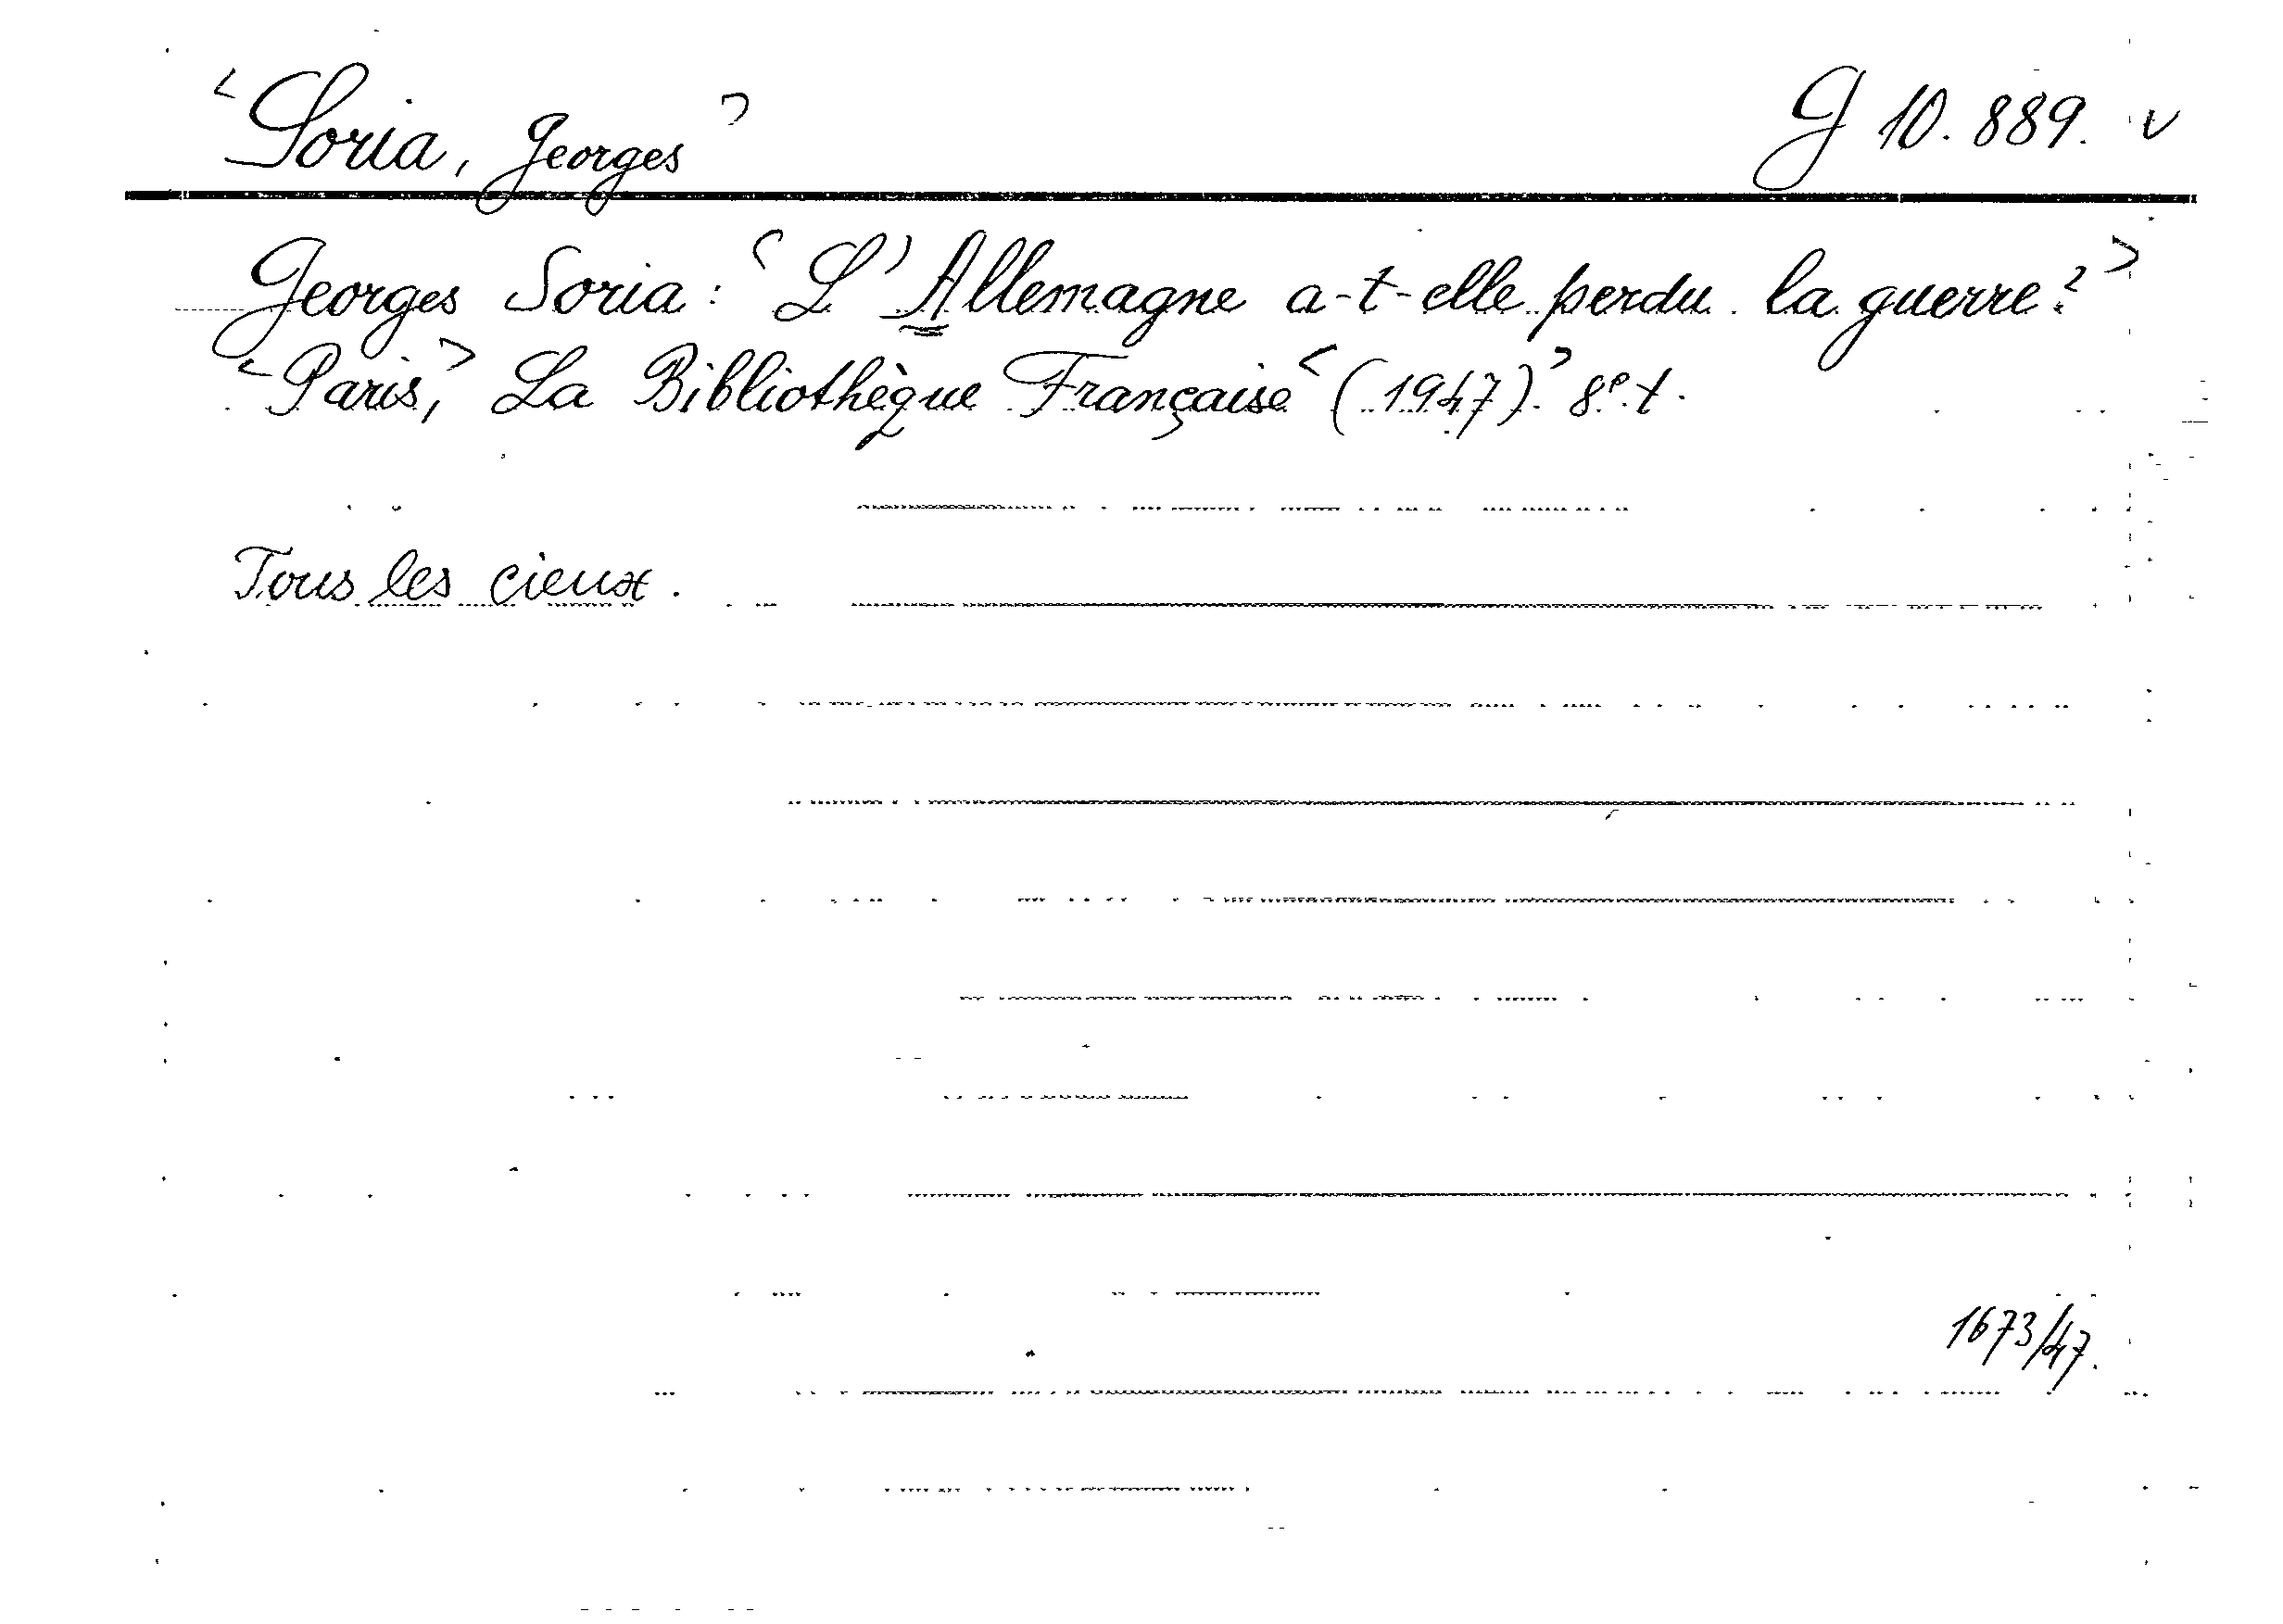 <Soria, Georges> G 10.889. v
Georges Soria: <L'Allemagne a-t-elle perdu la guerre?>
<Paris,> La Bibliothèque Française <(1947).> 8°. t.
Tous les cieux.
1673/47.